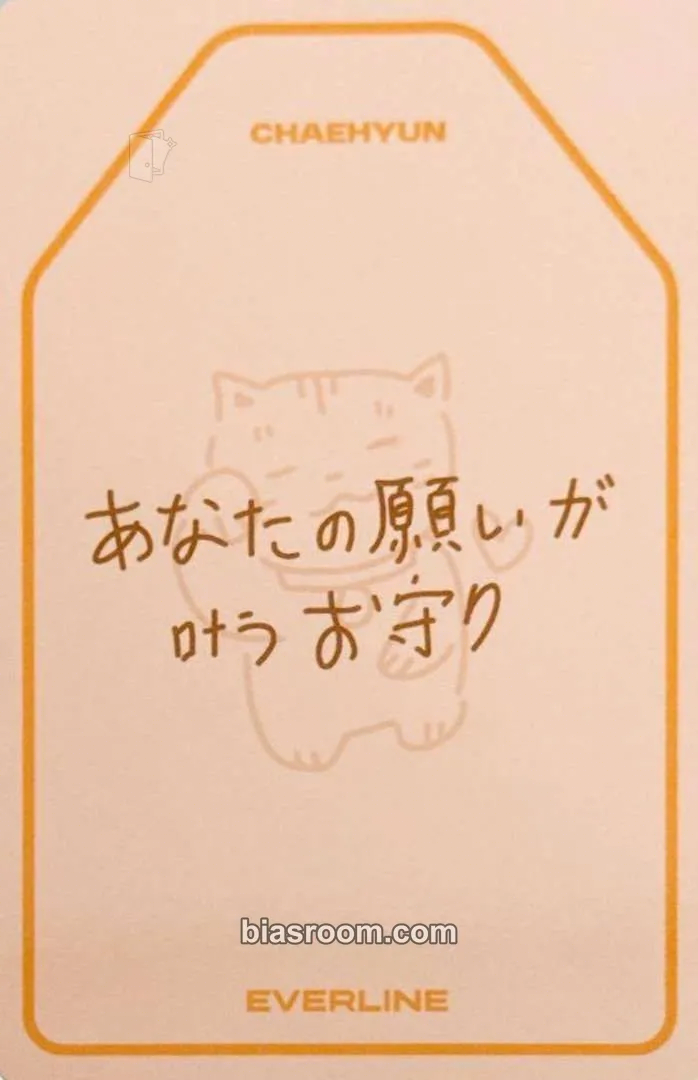 CHAEHYUN
あなたの願いが
叶うお守り
biasroom.com
EVERLINE